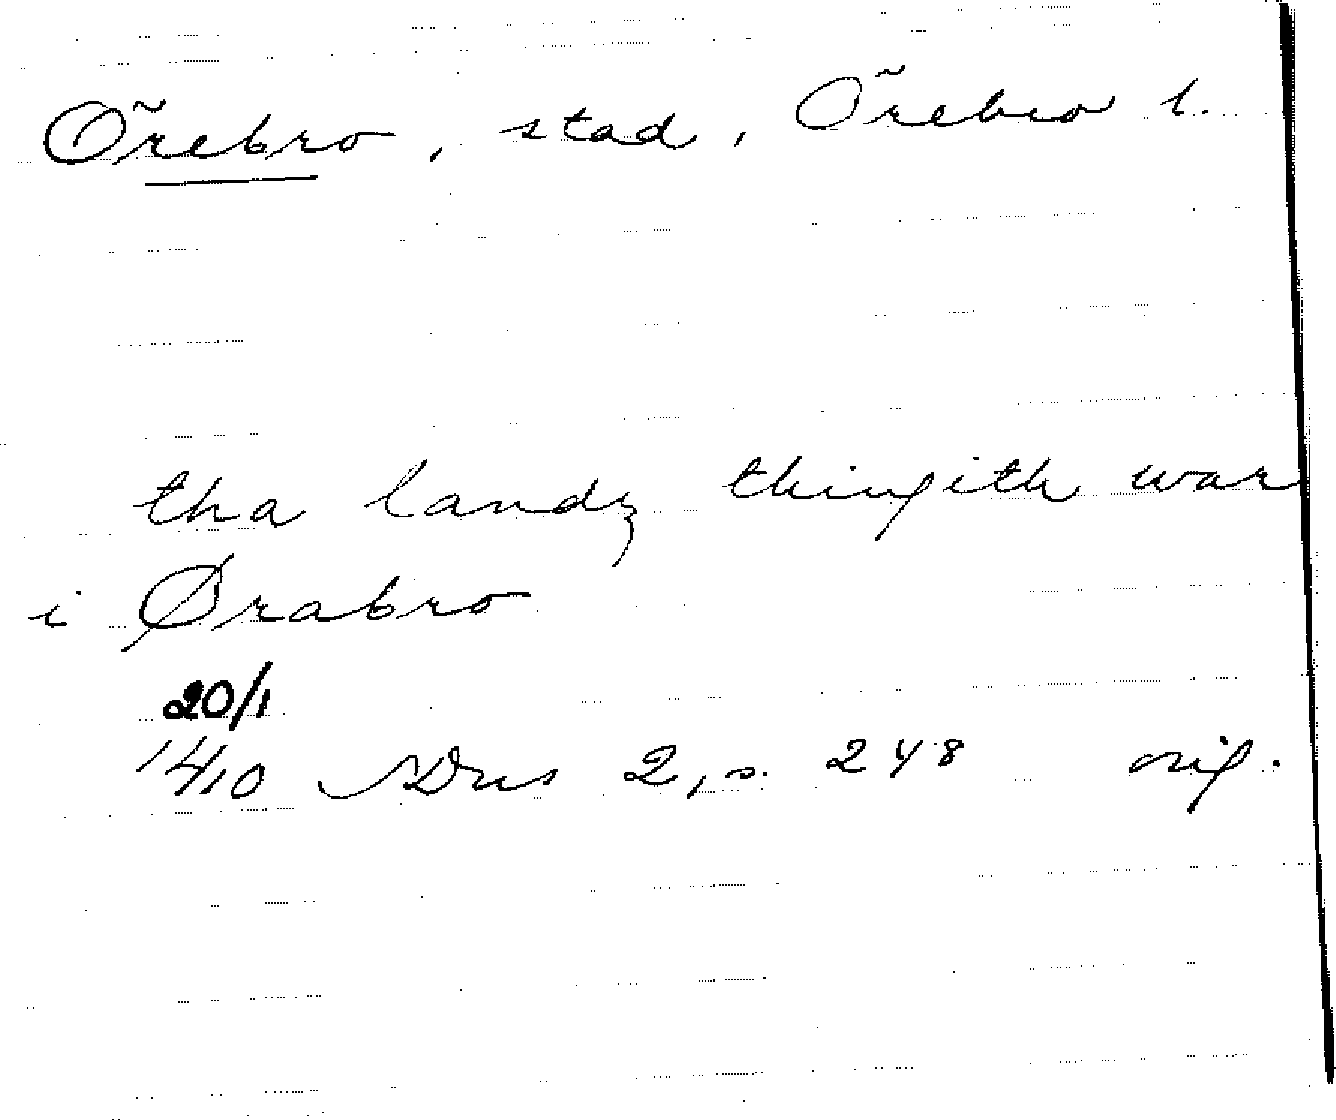 Örebro, stad, Örebro l.
tha landz thingith war
i Ørabro
20/1
1410 SDns 2, s. 248 orig.